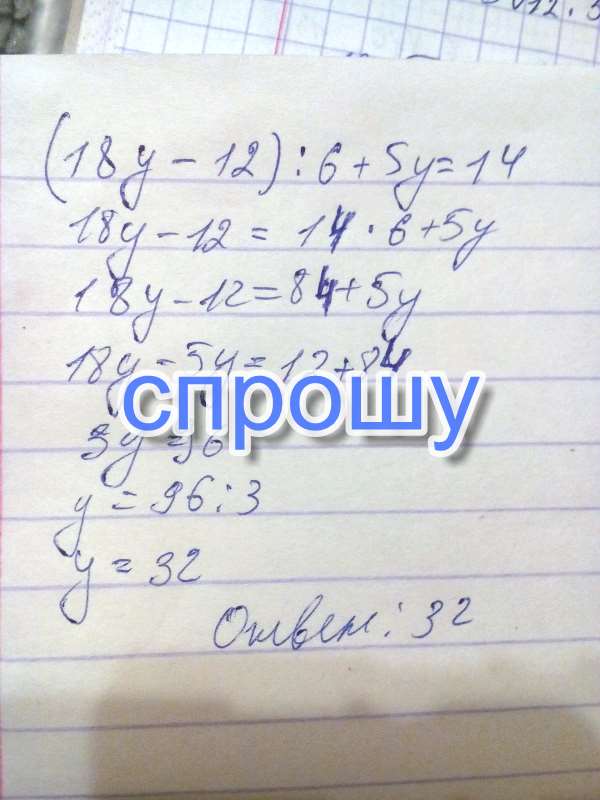 (18y - 12) : 6 + 5y = 14
18y - 12 = 14 · 6 + 5y
18y - 12 = 84 + 5y
18y - 5y = 12 + 84
спрошу
3y = 96
y = 96 : 3
y = 32
Ответ: 32